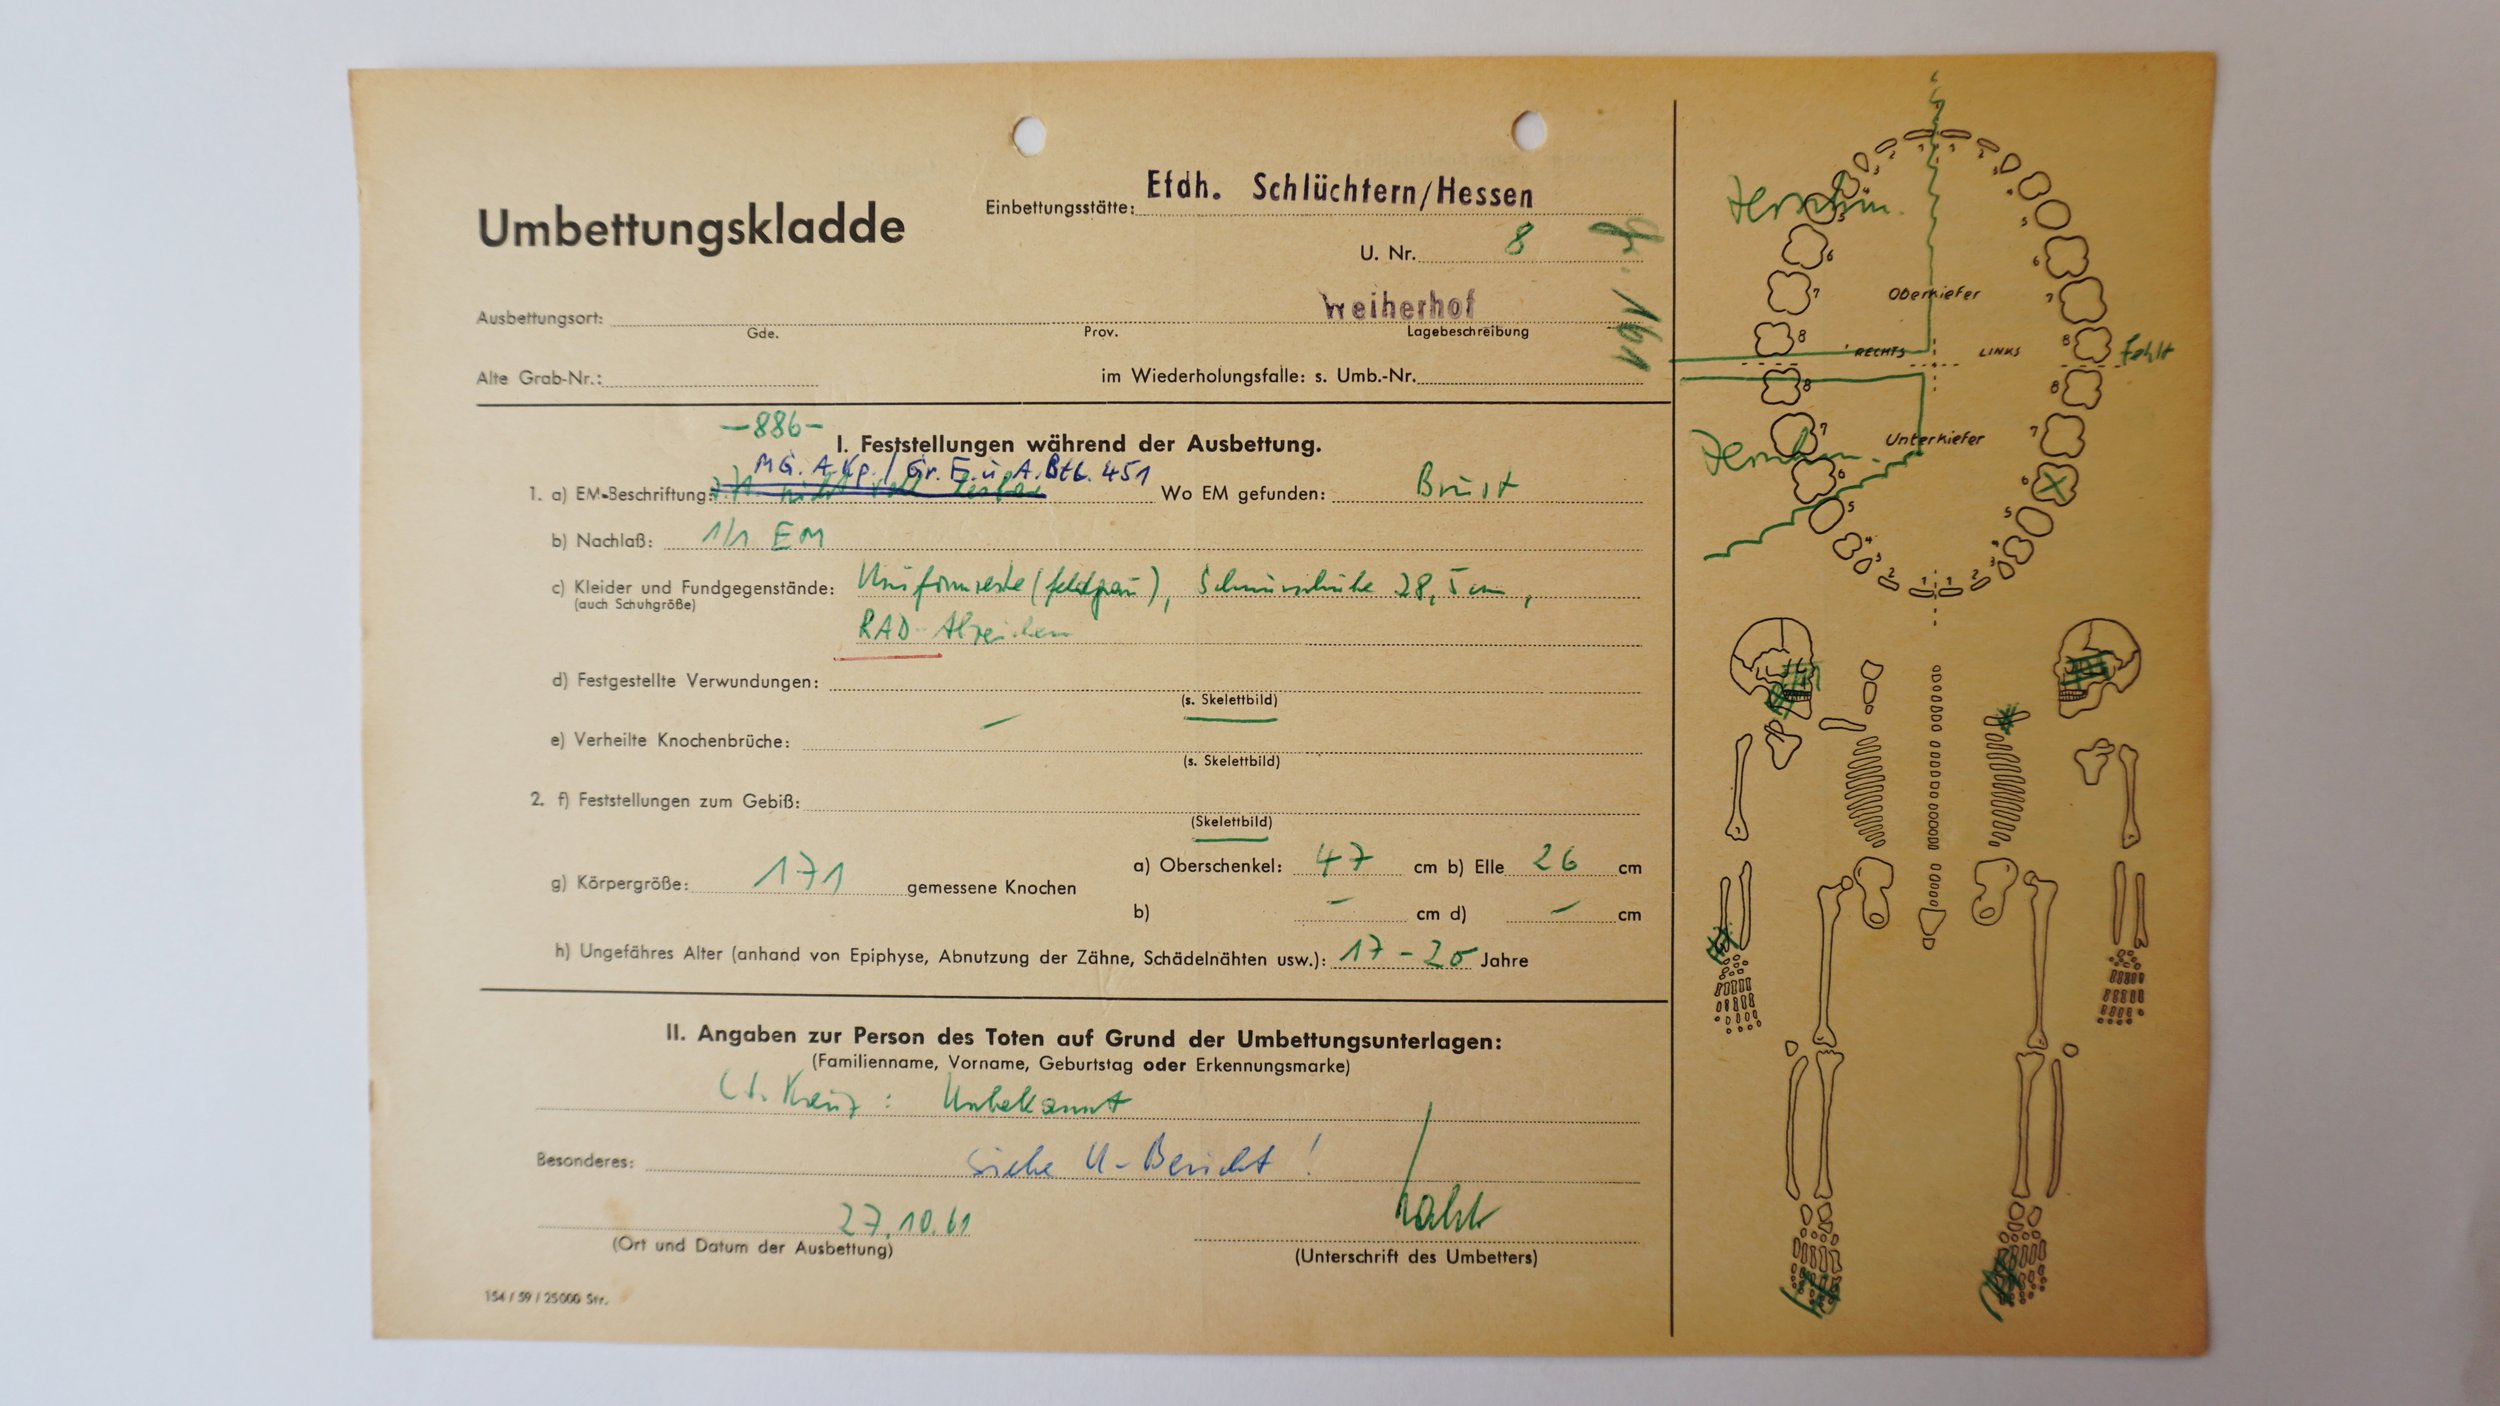 Umbettungskladde
Einbettungsstätte: Efdh. Schlüchtern/Hessen
U. Nr. 8
Gr. 161
Ausbettungsort: Weiherhof
Gde. Prov. Lagebeschreibung
Alte Grab-Nr.: im Wiederholungsfalle: s. Umb.-Nr.
-886-
I. Feststellungen während der Ausbettung.
MG. A. Kp. / Gr. E. u. A. Btl. 451
1. a) EM-Beschriftung: Wo EM gefunden: Brust
b) Nachlaß: 1/1 EM
c) Kleider und Fundgegenstände: Uniformreste (feldgrau), Schnürschuhe 28,5 cm,
(auch Schuhgröße)
RAD-Abzeichen
d) Festgestellte Verwundungen:
(s. Skelettbild)
e) Verheilte Knochenbrüche: –
(s. Skelettbild)
2. f) Feststellungen zum Gebiß:
(Skelettbild)
g) Körpergröße: 171 gemessene Knochen a) Oberschenkel: 47 cm b) Elle 26 cm
b) – cm d) – cm
h) Ungefähres Alter (anhand von Epiphyse, Abnutzung der Zähne, Schädelnähten usw.): 17 - 20 Jahre
II. Angaben zur Person des Toten auf Grund der Umbettungsunterlagen:
(Familienname, Vorname, Geburtstag oder Erkennungsmarke)
Kreuz: Unbekannt
Besonderes: siehe U-Bericht!
27.10.61
(Ort und Datum der Ausbettung) (Unterschrift des Umbetters)
154 / 59 / 25000 Str.
1 1
2 2
3 3
4 4
5 5
6 6
7 7
8 8 fehlt
Oberkiefer
RECHTS LINKS
8 8
7 7
Unterkiefer
6 6
5 5
4 4
3 3
2 2
1 1